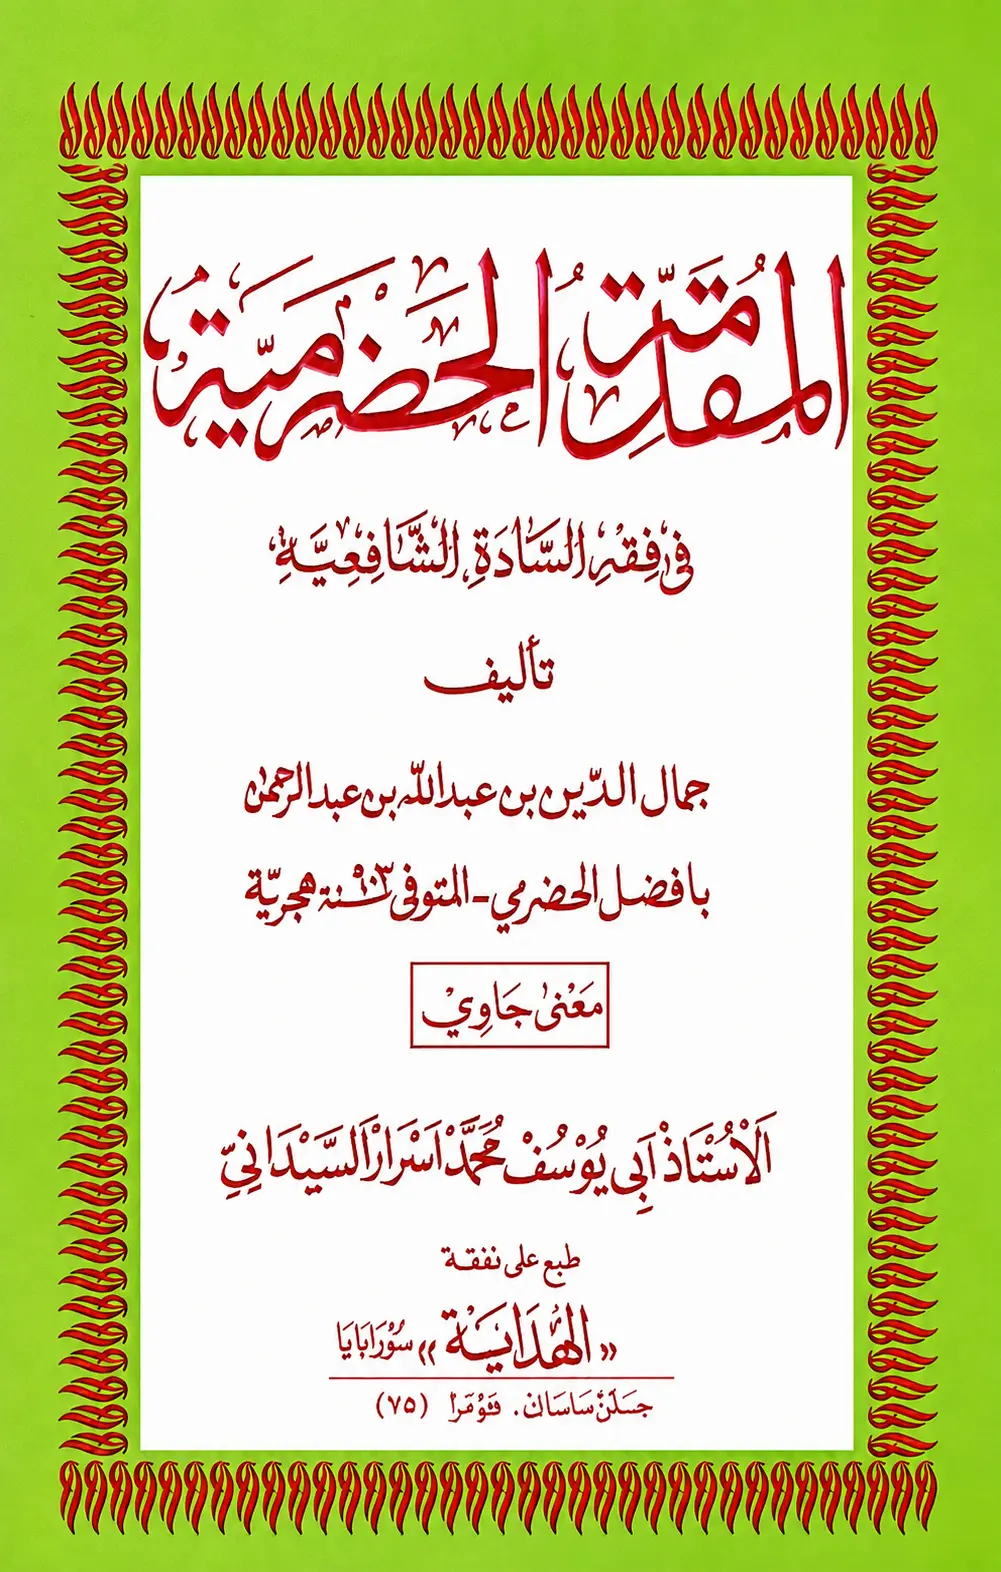 المُقَدِّمَةُ الحَضْرَمِيَّة
فِى فِقْهِ السَّادَةِ الشَّافِعِيَّةِ
تأليف
جمال الدّين بن عبدالله بن عبدالرحمن
بافضل الحضرمي - المتوفى سنة ٩٠٣ هجريّة
مَعْنىٰ جَاوِيْ
اَلْاُسْتَاذْ اَبِى يُوْسُفْ مُحَمَّدْ اَسْرَارْ اَلسَّيْدَانِيّ
طبع على نفقة
«الهُدَايَة» سُوْرَابَايَا
جَسَلَنْ سَاسَانْ. نَوْمَرْ (٧٥)